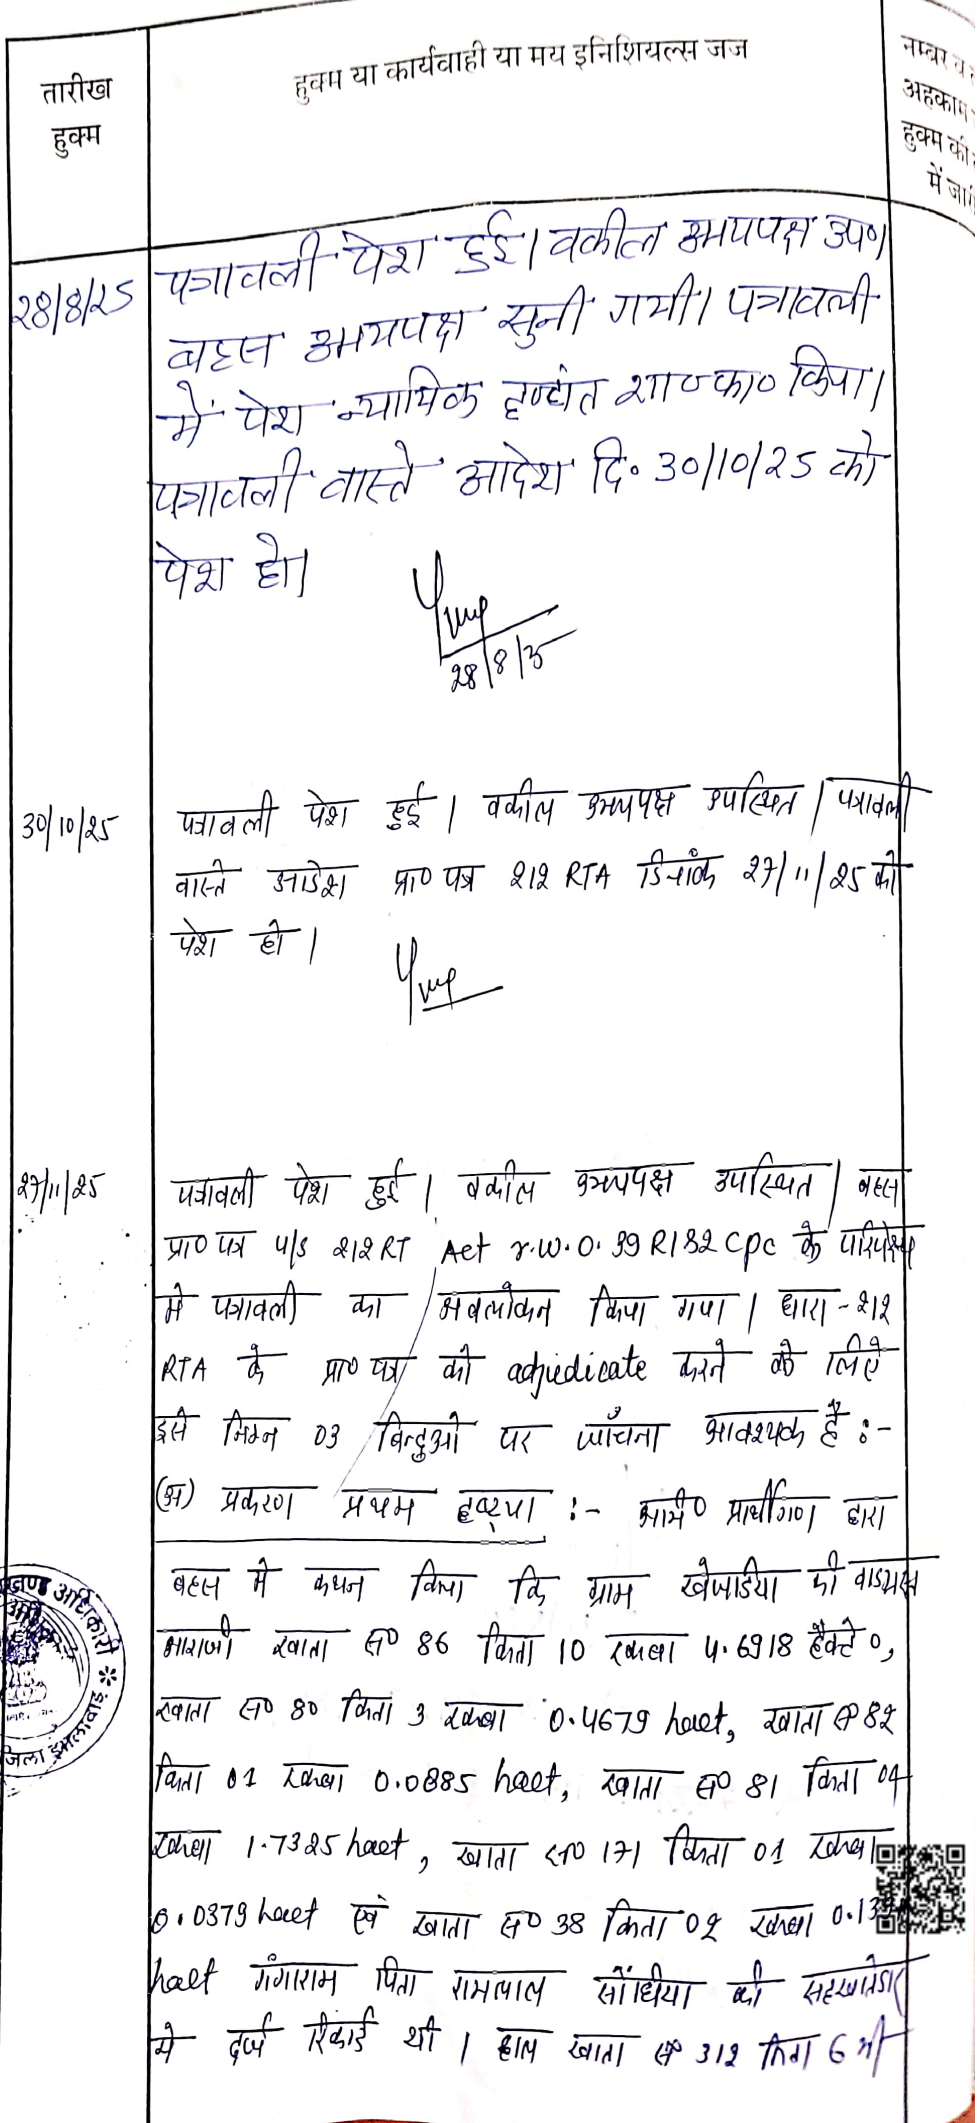 तारीख
हुक्म
हुक्म या कार्यवाही या मय इनिशियल्स जज
नम्बर व
अहकाम
हुक्म की
में जारी
28/8/25
पत्रावली पेश हुई। वकील उभयपक्ष उप०।
बहस उभयपक्ष सुनी गयी। पत्रावली
में पेश न्यायिक दृष्टांत शा०का० किया।
पत्रावली वास्ते आदेश दि० 30/10/25 को
पेश हो।
28/8/25
30/10/25
पत्रावली पेश हुई। वकील उभयपक्ष उपस्थित। पत्रावली
वास्ते आदेश प्रा० पत्र 212 RTA दिनांक 27/11/25 को
पेश हो।
27/11/25
पत्रावली पेश हुई। वकील उभयपक्ष उपस्थित। बहस
प्रा० पत्र u/s 212 RT Act r.w.O. 39 R1&2 cpc के परिपेक्ष्य
मे पत्रावली का अवलोकन किया गया। धारा-212
RTA के प्रा० पत्र को adjudicate करने के लिऐ
इसे निम्न 03 बिन्दुओ पर जाँचना आवश्यक है :-
(अ) प्रकरण प्रथम दृष्टया :- अभि० प्रार्थीगण द्वारा
बहस मे कथन किया कि ग्राम खेजडिया की वादग्रस्त
आराजी खाता स० 86 किता 10 रकबा 4.6918 हैक्टे०,
खाता स० 80 किता 3 रकबा 0.4679 hact, खाता स० 82
किता 01 रकबा 0.0885 hact, खाता स० 81 किता 04
रकबा 1.7325 hact, खाता स० 171 किता 01 रकबा
0.0379 hact एवं खाता स० 38 किता 02 रकबा
hact गंगाराम पिता रामलाल सौंधीया की सहखातेदारी
मे दर्ज रिकार्ड थी। हाल खाता स० 312 किता 6 मे
खण्ड अधिकारी
जिला झालावाड़